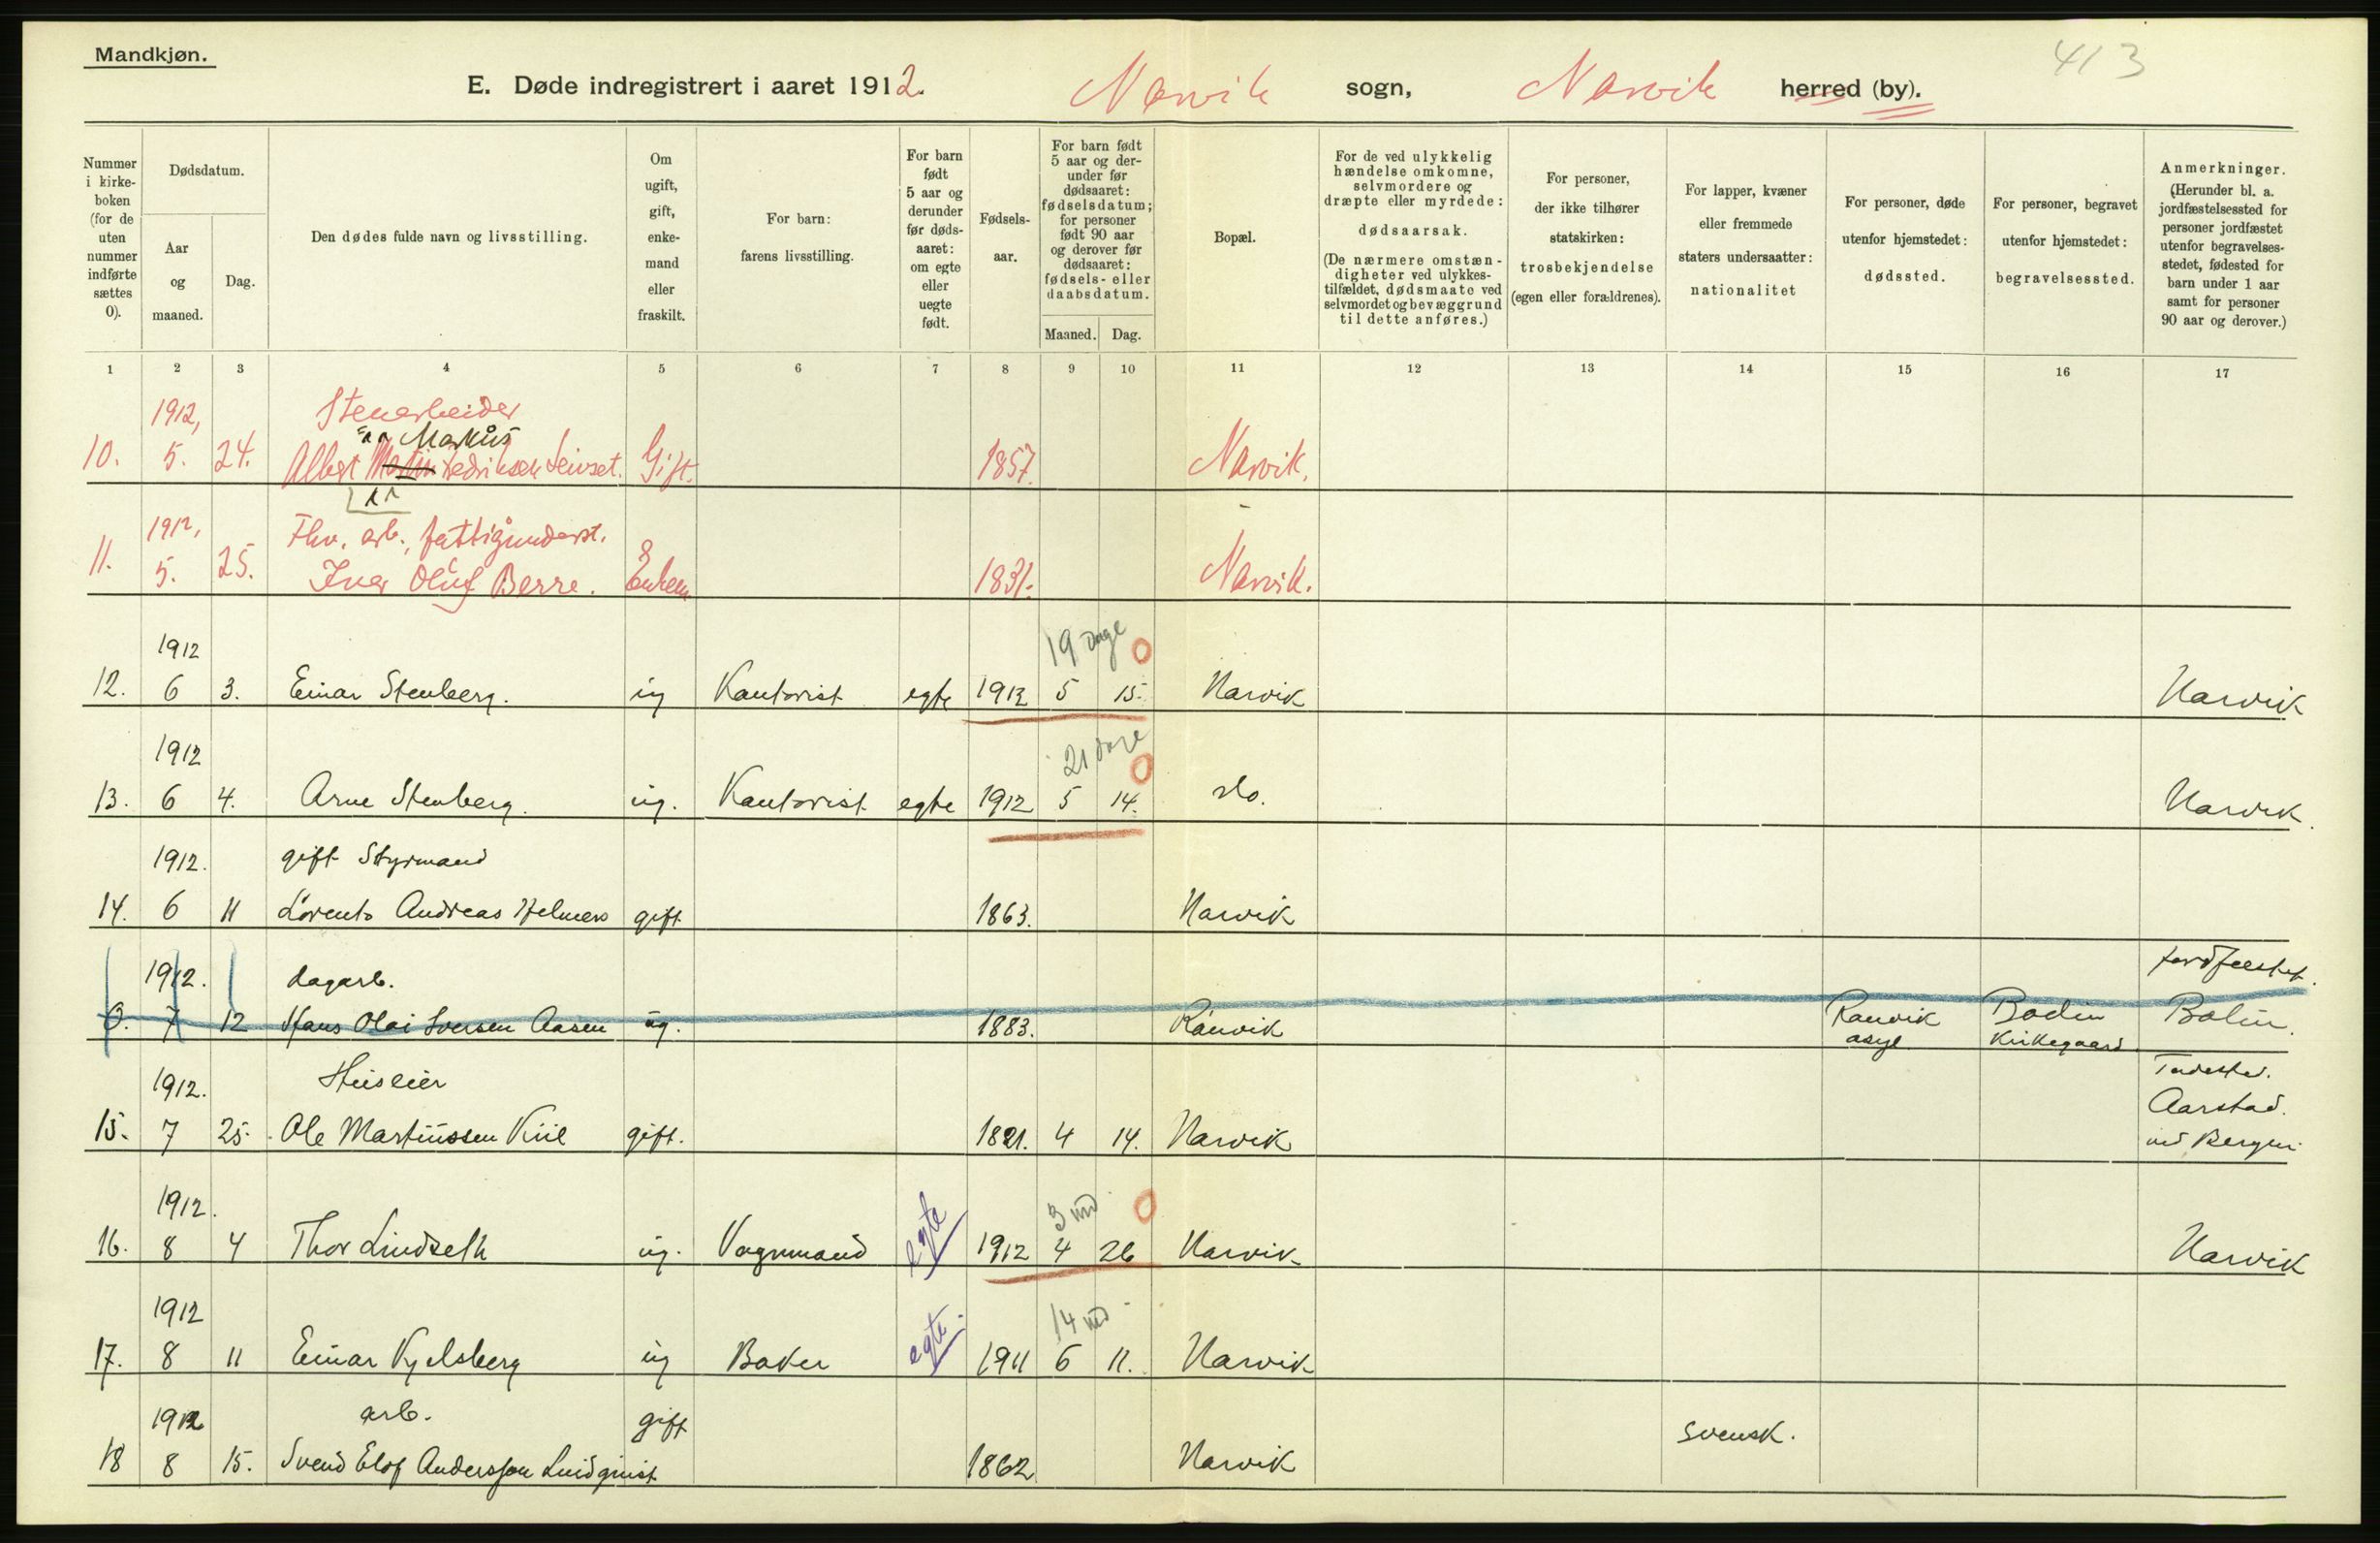 Mandkjøn.
413
E. Døde indregistrert i aaret 1912. Narvik sogn, Narvik herred (by).
Nummer i kirkeboken (for de uten nummer indførte sættes 0).
Dødsdatum.
Aar og maaned.
Dag.
Den dødes fulde navn og livsstilling.
Om ugift, gift, enkemand eller fraskilt.
For barn: farens livsstilling.
For barn født 5 aar og derunder før dødsaaret: om egte eller uegte født.
Fødselsaar.
For barn født 5 aar og derunder før dødsaaret: fødselsdatum; for personer født 90 aar og derover før dødsaaret: fødsels- eller daabsdatum.
Maaned. Dag.
Bopæl.
For de ved ulykkelig hændelse omkomne, selvmordere og dræpte eller myrdede: dødsaarsak. (De nærmere omstændigheter ved ulykkestilfældet, dødsmaate ved selvmordet og bevæggrund til dette anføres.)
For personer, der ikke tilhører statskirken: trosbekjendelse (egen eller forældrenes).
For lapper, kvæner eller fremmede staters undersaatter: nationalitet
For personer, døde utenfor hjemstedet: dødssted.
For personer, begravet utenfor hjemstedet: begravelsessted.
Anmerkninger. (Herunder bl. a. jordfæstelsessted for personer jordfæstet utenfor begravelsesstedet, fødested for barn under 1 aar samt for personer 90 aar og derover.)
1 2 3 4 5 6 7 8 9 10 11 12 13 14 15 16 17
1912, Stenarbeider
Markus
10. 5. 24. Albert Martin Fedriksen Leivset. Gift. 1857. Narvik.
1912, Fhv. arb., fattigunderst.
11. 5. 25. Iver Oluf Berre. Enkem. 1831. Narvik.
1912 19 dage 0
12. 6 3. Einar Stenberg. ug Kontorist egte 1912 5 15. Narvik Narvik
1912 21 dage 0
13. 6 4. Arne Stenberg. ug. Kontorist egte 1912 5 14. do. Narvik.
1912. gift Styrmand
14. 6 11 Lorents Andreas Helmers gift 1863. Narvik
1912. dagarb. jordfæstet.
0. 7 12 Hans Olai Iversen Aasen ug. 1883. Rønvik Rønvik asyl Bodin Kirkegaard Bodin.
1912. Huseier Fødested.
15. 7 25. Ole Martinussen Kiil gift. 1821. 4 14. Narvik Aarstad. ved Bergen
1912. 3 md 0
16. 8 4 Thor Lindseth ug. Vognmand egte 1912 4 26 Narvik Narvik
1912 14 md
17. 8 11 Einar Kjelsberg ug Baker egte. 1911 6 11. Narvik
1912 arb. gift svensk.
18 8 15. Svend Elof Andersson Lindqvist 1862 Narvik